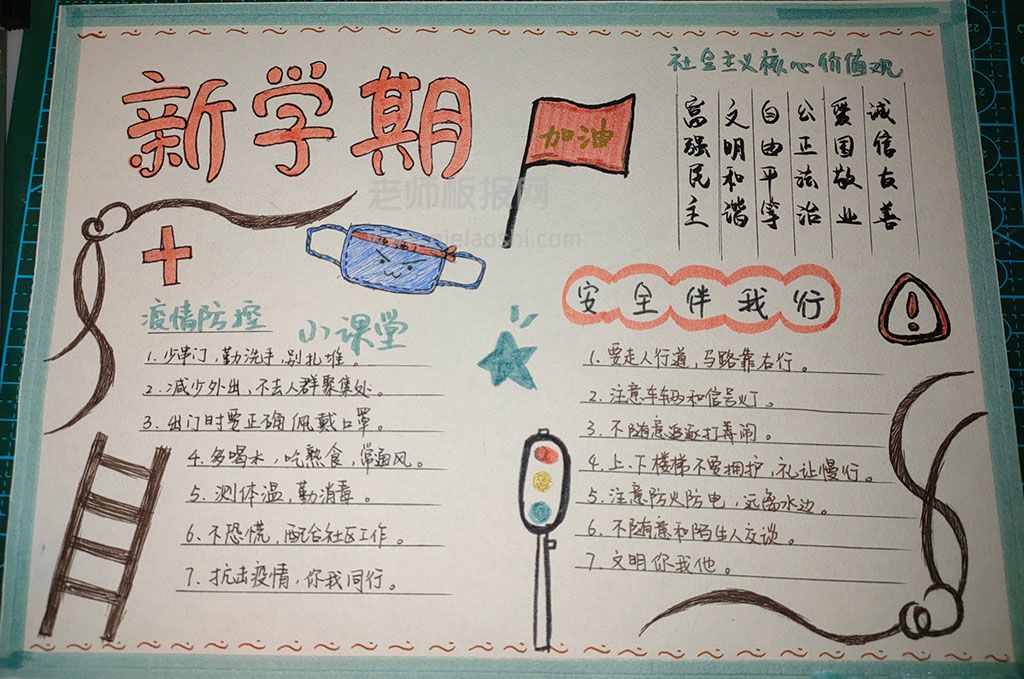 新学期
加油
社会主义核心价值观
富强民主
文明和谐
自由平等
公正法治
爱国敬业
诚信友善
老师板报网
疫情防控 小课堂
1. 少串门，勤洗手，别扎堆。
2. 减少外出，不去人群聚集处。
3. 出门时要正确佩戴口罩。
4. 多喝水，吃熟食，常通风。
5. 测体温，勤消毒。
6. 不恐慌，配合社区工作。
7. 抗击疫情，你我同行。
安全伴我行
1. 要走人行道，马路靠右行。
2. 注意车辆和信号灯。
3. 不随意追逐打闹。
4. 上、下楼梯不要拥护，礼让慢行。
5. 注意防火防电，远离水边。
6. 不随意和陌生人交谈。
7. 文明你我他。